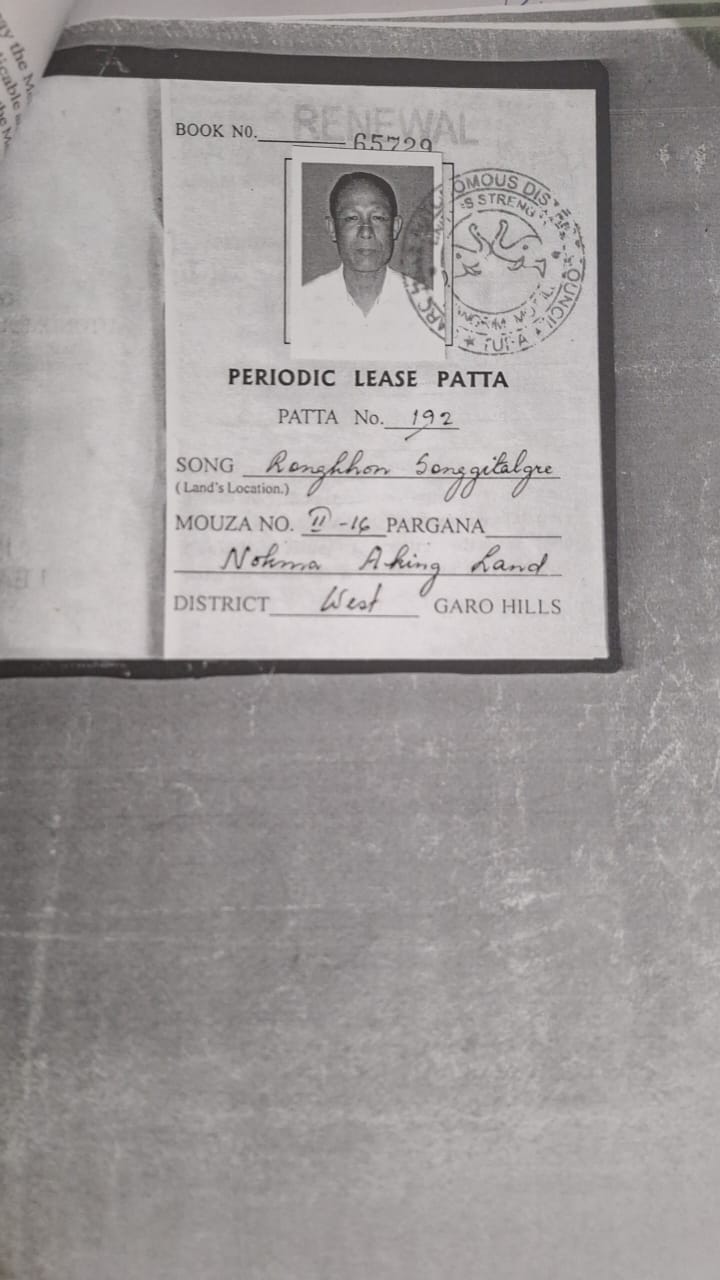 RENEWAL
BOOK NO. 65729
PERIODIC LEASE PATTA
PATTA No. 192
SONG Rongkhon Songgitalgre
(Land's Location.)
MOUZA NO. II-16 PARGANA
Nokma Aking Land
DISTRICT West GARO HILLS